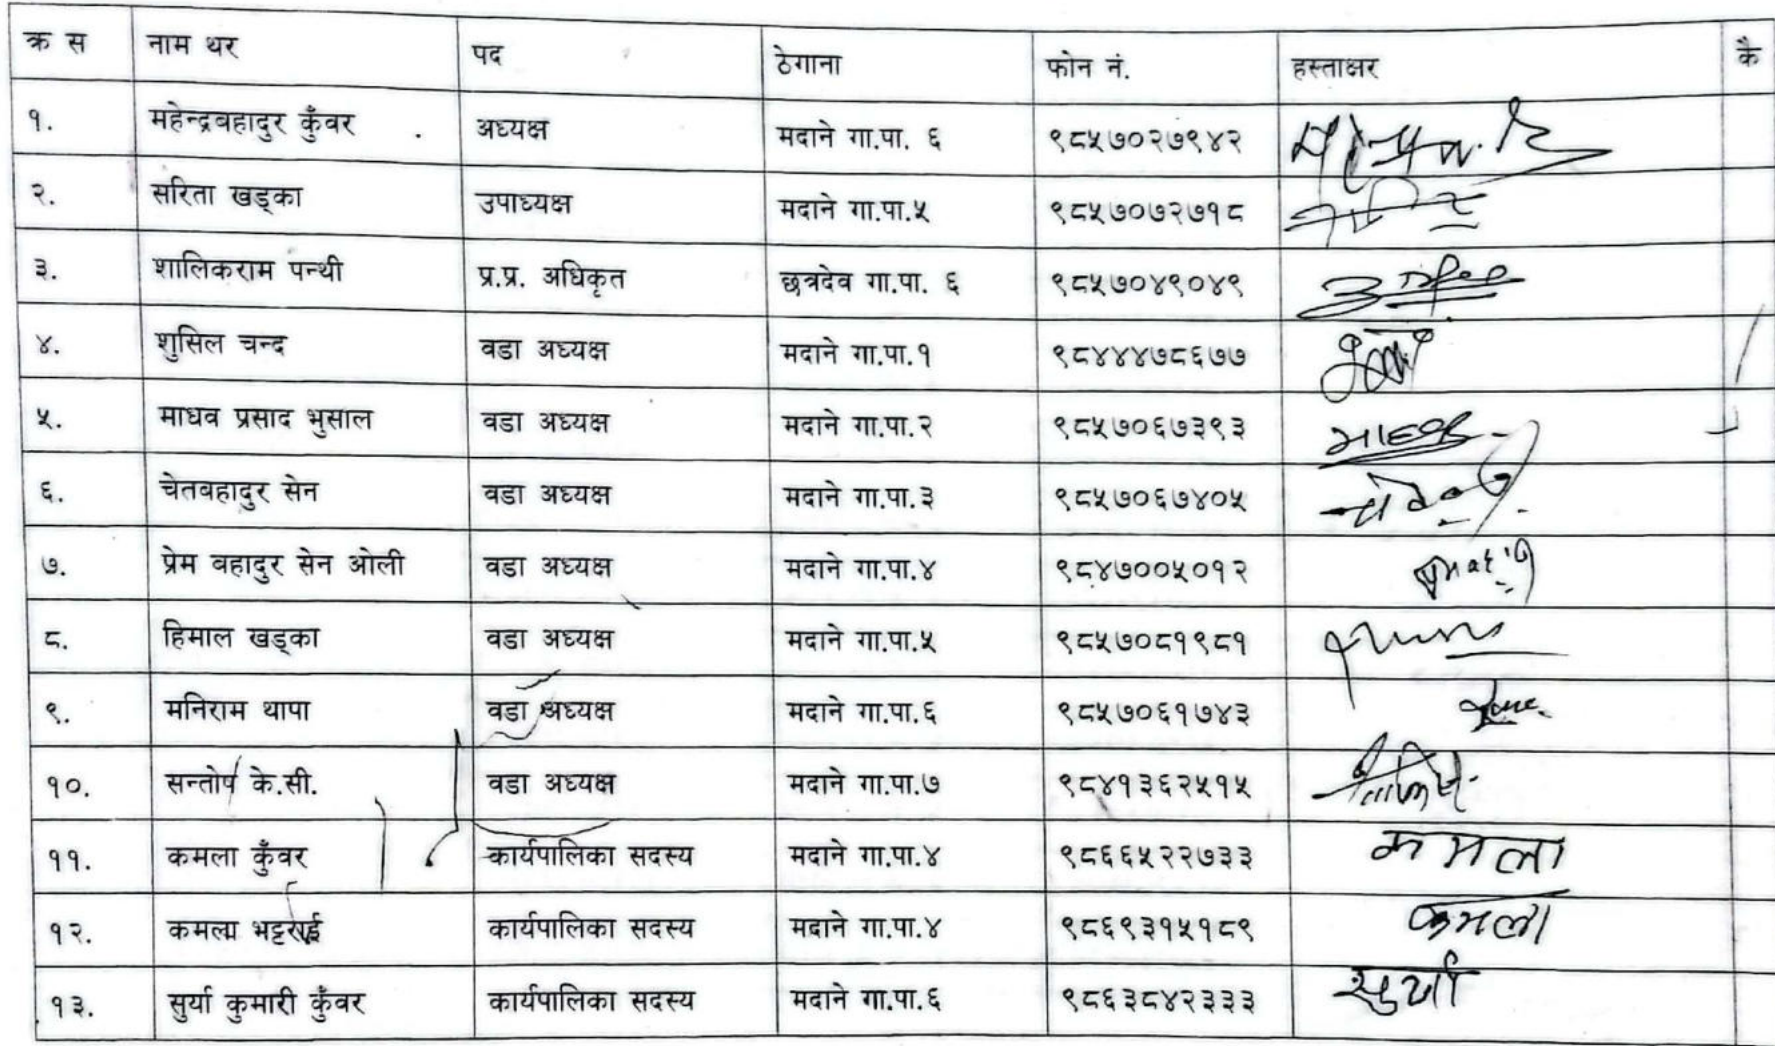 क्र स नाम थर पद ठेगाना फोन नं. हस्ताक्षर कै
१. महेन्द्रबहादुर कुँवर अध्यक्ष मदाने गा.पा. ६ ९८५७०२७९४२
२. सरिता खड्का उपाध्यक्ष मदाने गा.पा.५ ९८५७०७२७१८
३. शालिकराम पन्थी प्र.प्र. अधिकृत छत्रदेव गा.पा. ६ ९८५७०४९०४९
४. शुसिल चन्द वडा अध्यक्ष मदाने गा.पा.१ ९८४४४७८६७७
५. माधव प्रसाद भुसाल वडा अध्यक्ष मदाने गा.पा.२ ९८५७०६७३९३ माधव
६. चेतबहादुर सेन वडा अध्यक्ष मदाने गा.पा.३ ९८५७०६७४०५
७. प्रेम बहादुर सेन ओली वडा अध्यक्ष मदाने गा.पा.४ ९८४७००५०१२
८. हिमाल खड्का वडा अध्यक्ष मदाने गा.पा.५ ९८५७०८१९८१
९. मनिराम थापा वडा अध्यक्ष मदाने गा.पा.६ ९८५७०६१७४३
१०. सन्तोष के.सी. वडा अध्यक्ष मदाने गा.पा.७ ९८४१३६२५१५
११. कमला कुँवर कार्यपालिका सदस्य मदाने गा.पा.४ ९८६६५२२७३३ कमला
१२. कमला भट्टराई कार्यपालिका सदस्य मदाने गा.पा.४ ९८६९३१५१८९ कमला
१३. सुर्या कुमारी कुँवर कार्यपालिका सदस्य मदाने गा.पा.६ ९८६३८४२३३३ सुर्या